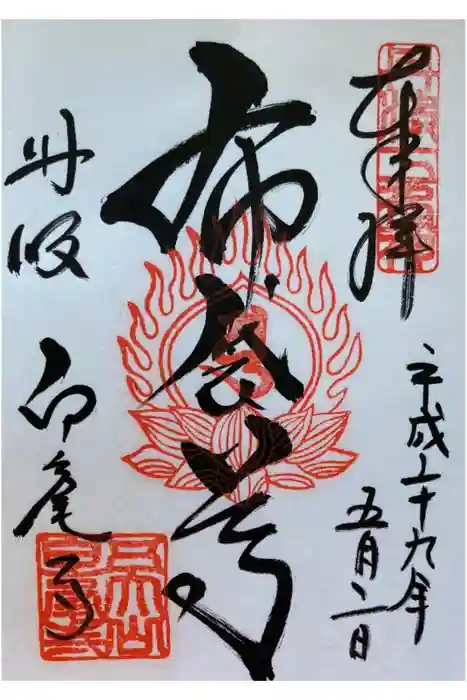 奉拝
平成二十九年
五月二日
布袋尊
丹波
白毫寺